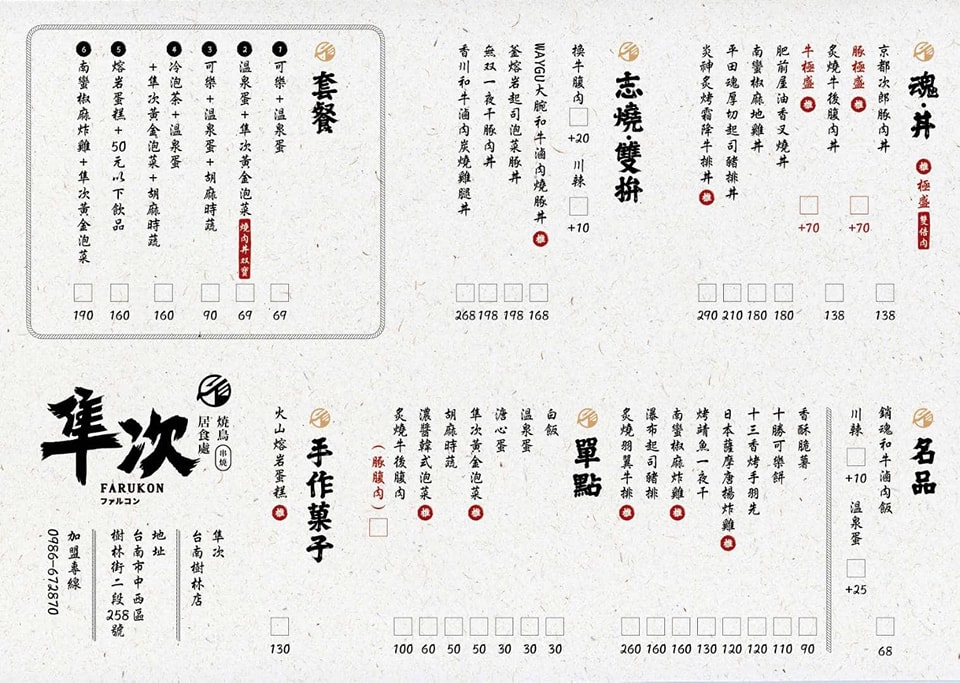 魂·丼
推 極盛 雙倍肉
京都次郎豚肉丼 138
豚極盛 推 +70
炙燒牛後腹肉丼 138
牛極盛 推 +70
肥前屋油香叉燒丼 180
南蠻椒麻地雞丼 180
平田魂厚切起司豬排丼 210
炎神炙烤霜降牛排丼 推 290
志燒·雙拚
換牛腹肉 +20 川辣 +10
WAAYGU大腕和牛滷肉燒豚丼 推 168
釜熔岩起司泡菜豚丼 198
無双一夜干豚肉丼 198
香川和牛滷肉炭燒雞腿丼 268
套餐
1 可樂+溫泉蛋 69
2 溫泉蛋+隼次黃金泡菜 燒肉丼双寶 69
3 可樂+溫泉蛋+胡麻時蔬 90
4 冷泡茶+溫泉蛋
+隼次黃金泡菜+胡麻時蔬 160
5 熔岩蛋糕+50元以下飲品 160
6 南蠻椒麻炸雞+隼次黃金泡菜 190
名品
銷魂和牛滷肉飯 68
川辣 +10 溫泉蛋 +25
香酥脆薯 90
十勝可樂餅 110
十三香烤手羽先 120
日本薩摩唐揚炸雞 推 120
烤鯖魚一夜干 130
南蠻椒麻炸雞 推 160
瀑布起司豬排 160
炙燒羽翼牛排 推 260
單點
白飯 30
溫泉蛋 30
溏心蛋 30
隼次黃金泡菜 推 50
胡麻時蔬 50
濃醬韓式泡菜 推 60
炙燒牛後腹肉 100
(豚腹肉)
手作菓子
火山熔岩蛋糕 推 130
燒鳥 串燒
居食處
隼次
FARUKON
ファルコン
隼次
台南樹林店
地址
台南市中西區
樹林街二段258號
加盟專線
0986-672870